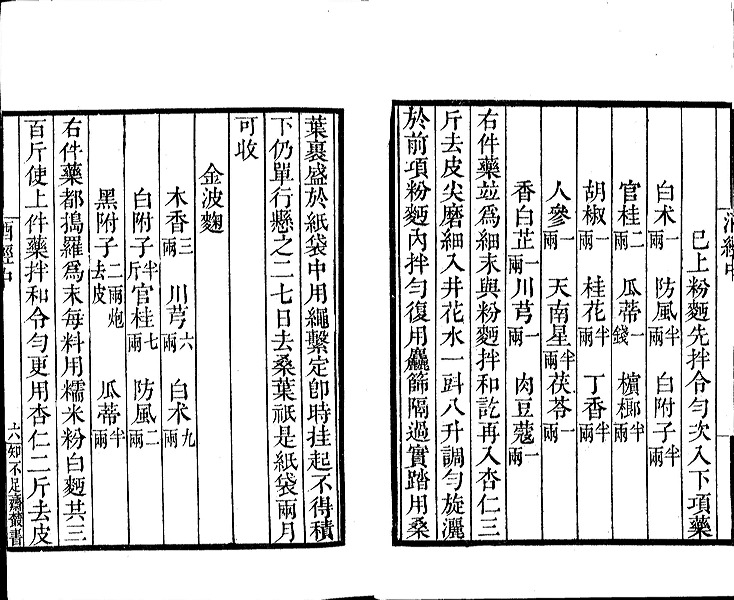 酒經中
已上粉麵先拌令勻次入下項藥
白朮一兩 防風半兩 白附子半兩
官桂二兩 瓜蒂一錢 檳榔半兩
胡椒一兩 桂花半兩 丁香半兩
人參一兩 天南星半兩 茯苓一兩
香白芷一兩 川芎一兩 肉豆蔻一兩
右件藥竝爲細末與粉麵拌和訖再入杏仁三
斤去皮尖磨細入井花水一㪷八升調勻旋灑
於前項粉麵內拌勻復用麤篩隔過實踏用桑
葉裹盛於紙袋中用繩繫定卽時挂起不得積
下仍單行懸之二七日去桑葉祇是紙袋兩月
可收
金波麴
木香三兩 川芎六兩 白朮九兩
白附子半斤 官桂七兩 防風二兩
黑附子二兩炮去皮 瓜蒂半兩
右件藥都搗羅爲末每料用糯米粉白麵共三
百斤使上件藥拌和令勻更用杏仁二斤去皮
酒經中
六知不足齋叢書